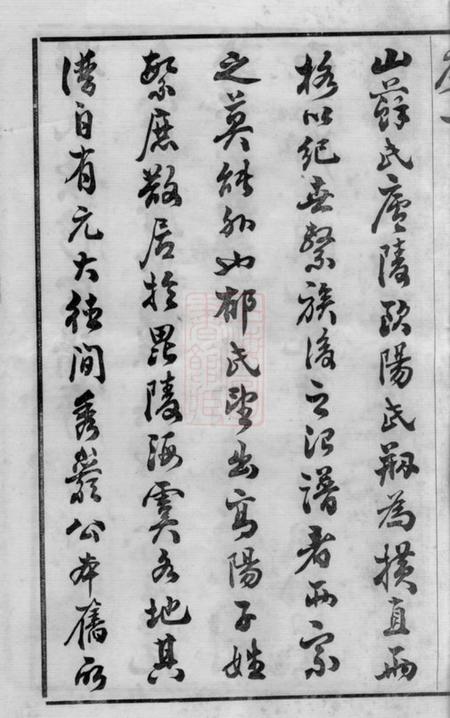 山蘇氏廬陵歐陽氏剏為橫直兩
格以紀世繫族後之治譜者兩宗
之莫能外也郁氏望出高陽子姓
繁庶散居於毘陵海虞各地其
漕自有元大德間秀巖公本舊所